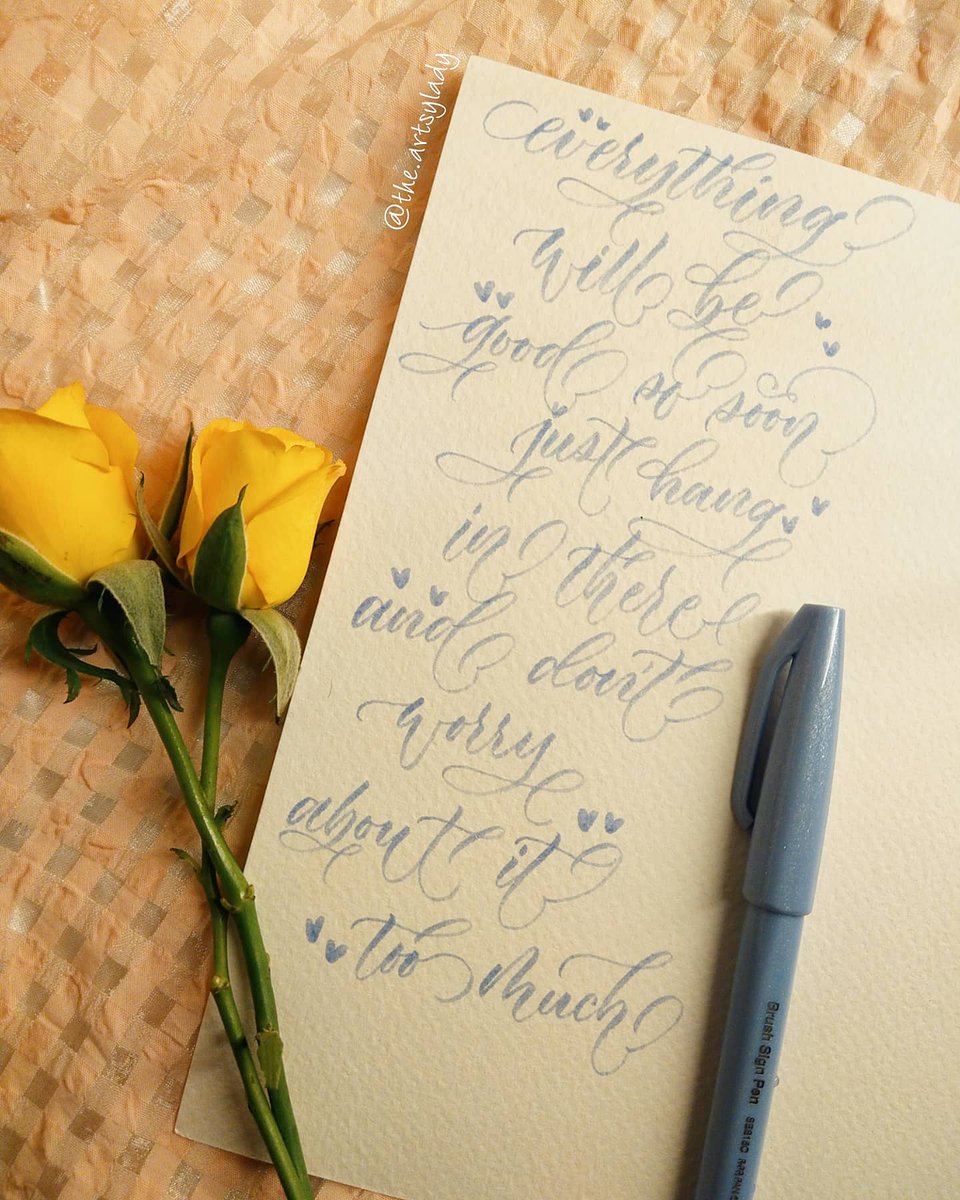 @the.artsylady
everything
will be
good so soon
just hang
in there
and don't
worry
about it
too much
Brush Sign Pen